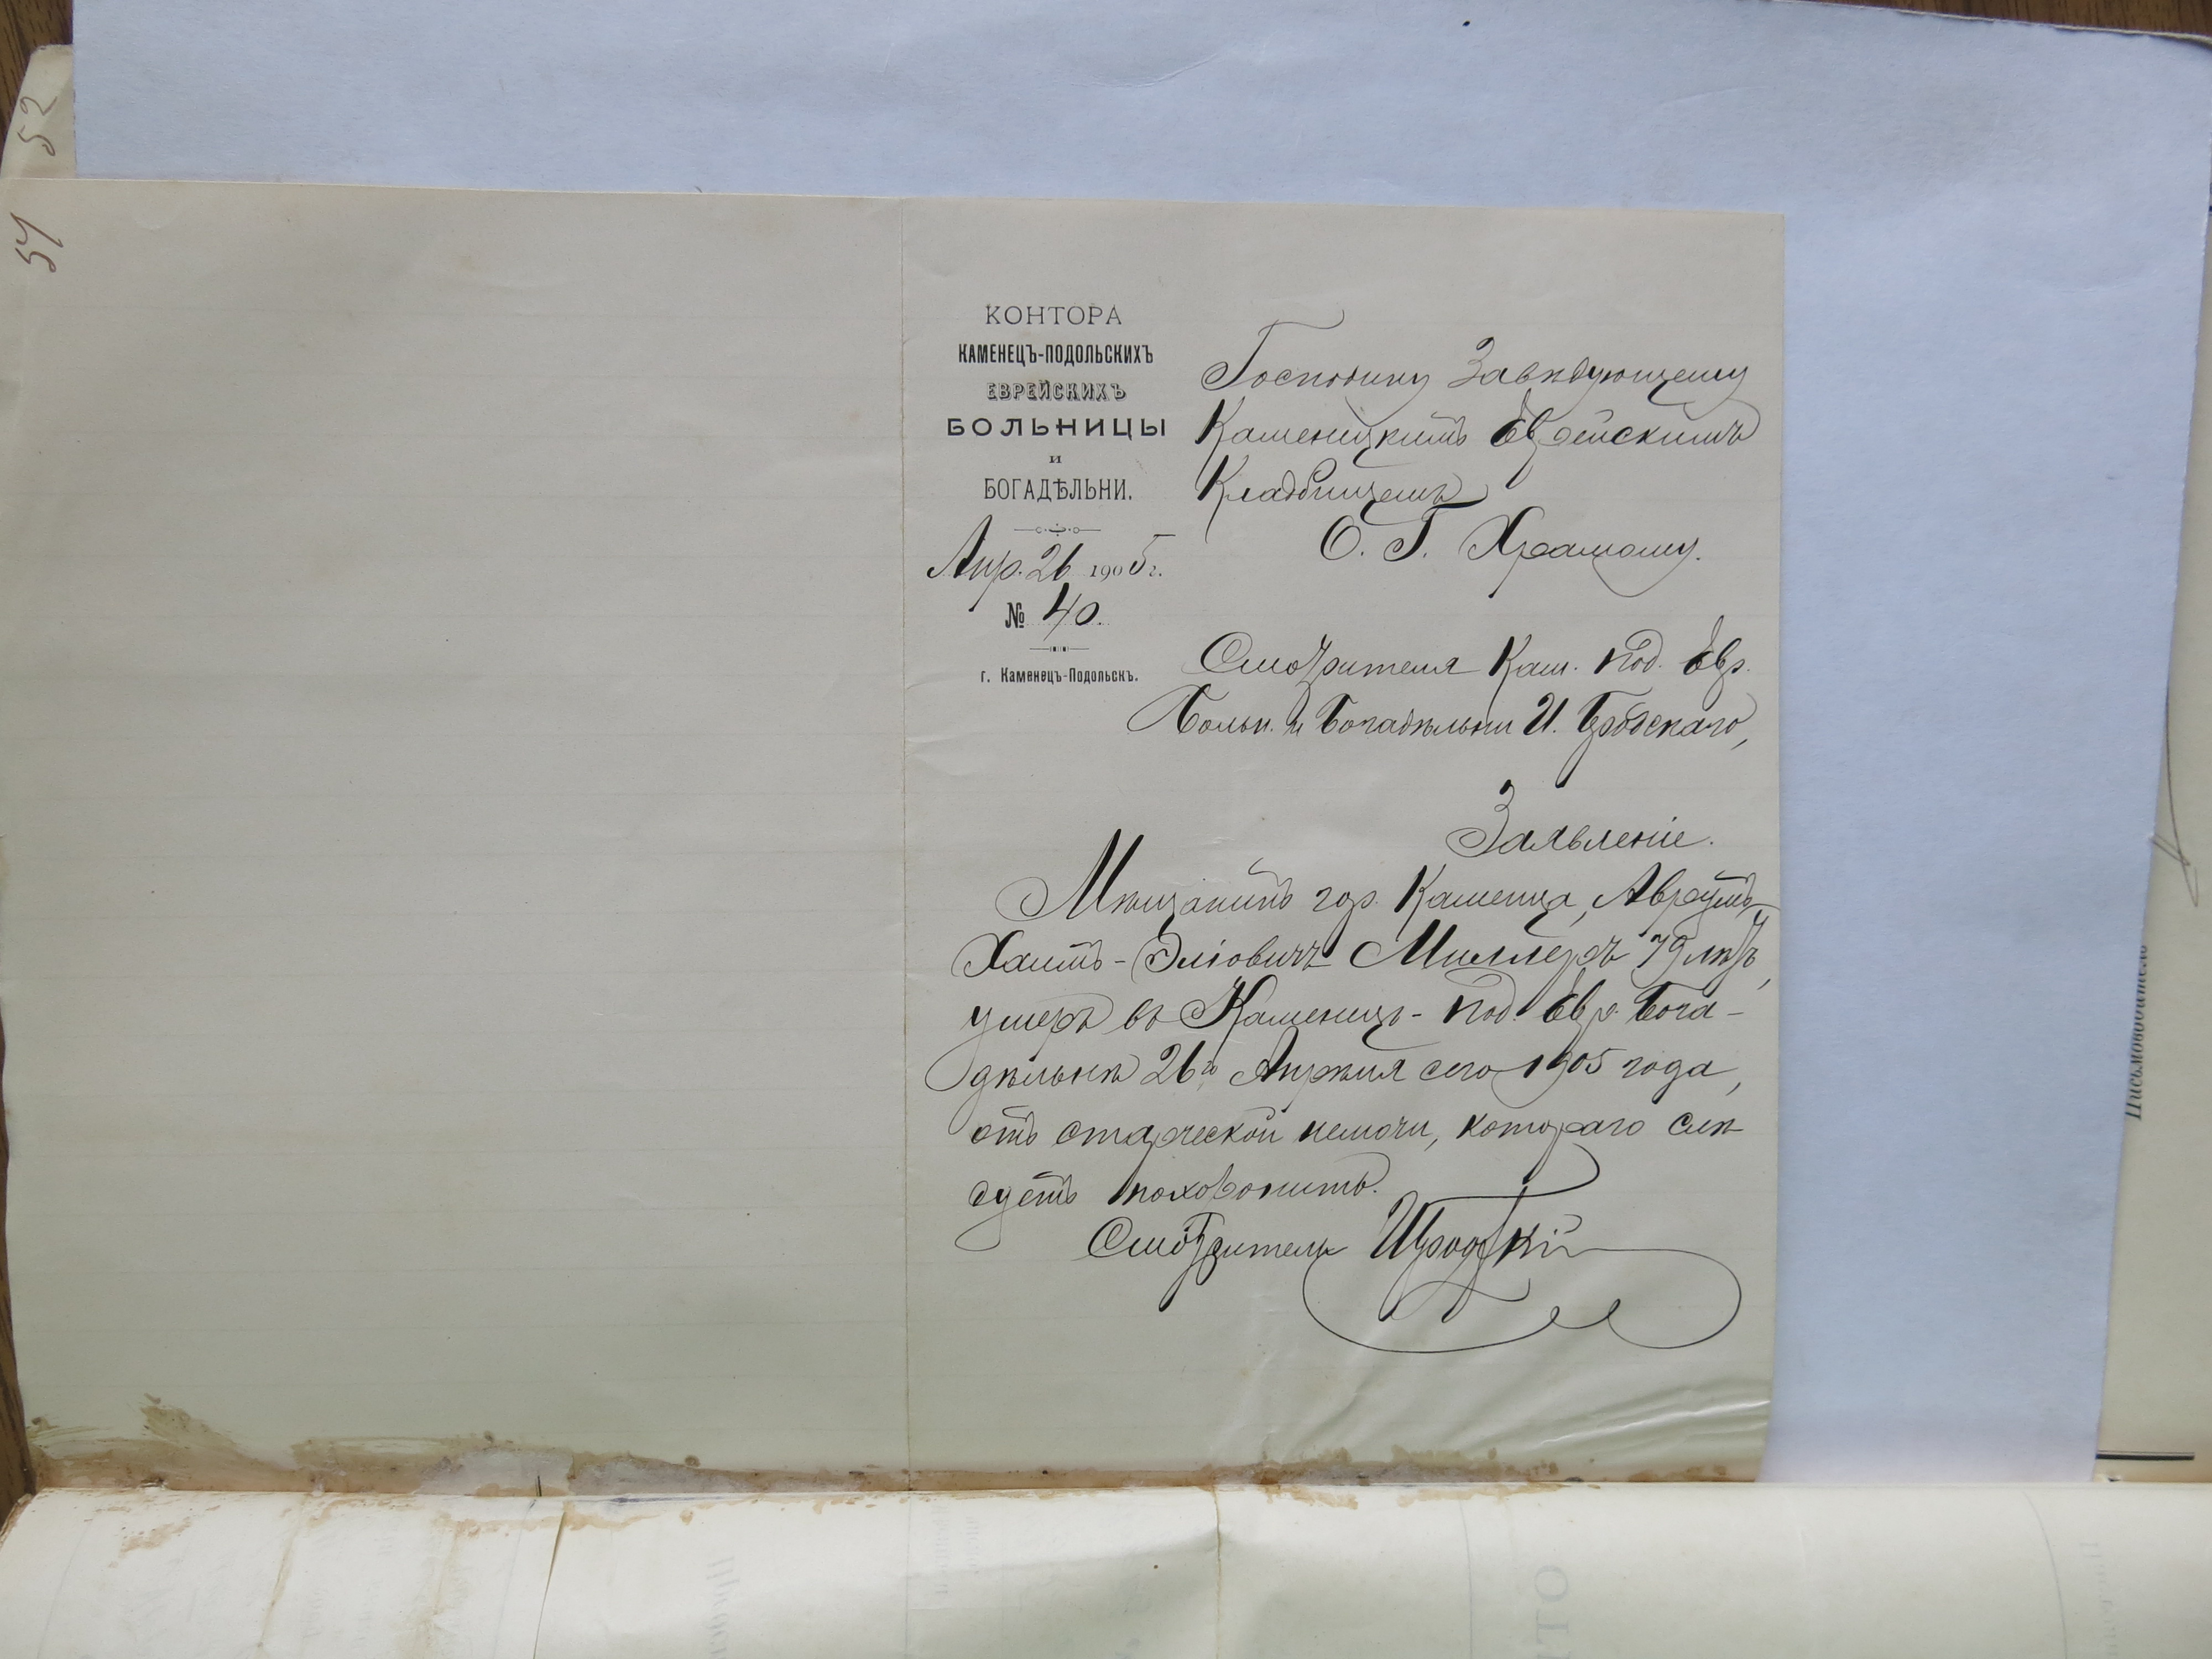 52
51
КОНТОРА
КАМЕНЕЦЪ-ПОДОЛЬСКИХЪ
ЕВРЕЙСКИХЪ
БОЛЬНИЦЫ
и
БОГАДѢЛЬНИ.
Апр. 26 1905 г.
№ 40.
г. Каменецъ-Подольскъ.
Господину Завѣдующему
Каменецкимъ Еврейскимъ
Кладбищемъ
О. Г. Храмому.
Смотрителя Кам. Под. Евр.
Больн. и Богадѣльни И. Бродскаго,
Заявленіе.
Мѣщанинъ гор. Каменца, Аврумъ-
Хаимъ-Эліовичъ Миллеръ 79 лѣтъ,
умеръ въ Каменецъ-Под. Евр. Бога-
дѣльнѣ 26го Апрѣля сего 1905 года,
отъ старческой немочи, котораго слѣ-
дуетъ похоронить.
Смотритель ИБродскій
Письмоводитель